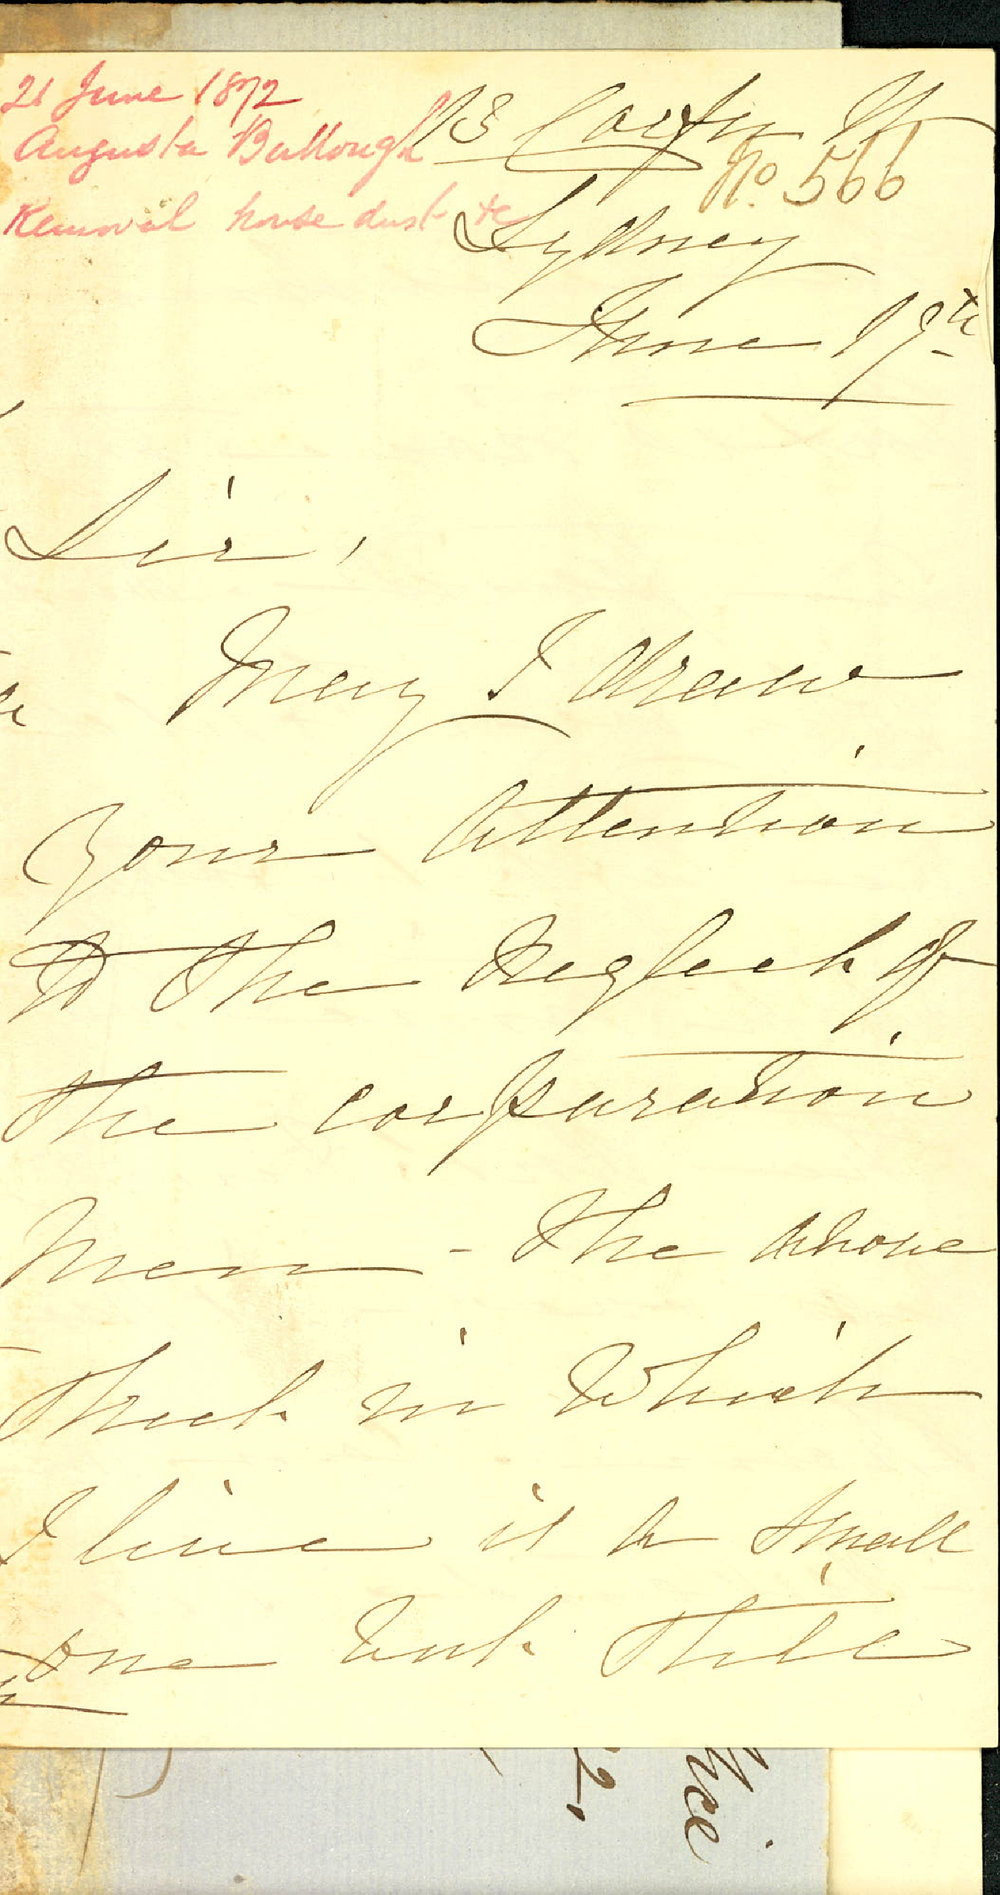 21 June 1872
Augusta Bullough
Removal house dust &c
No. 566
Sydney
June 17th
Sir,
May I draw
your attention
to the neglect of
the corporation
men - The above
street in which
I live is a small
one but still